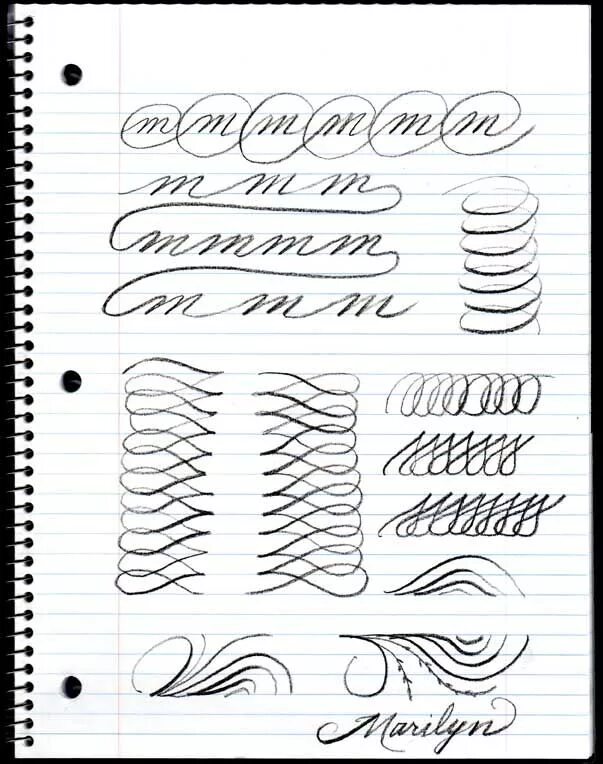 m m m m m m
m m m
m m m m
m m m
Marilyn